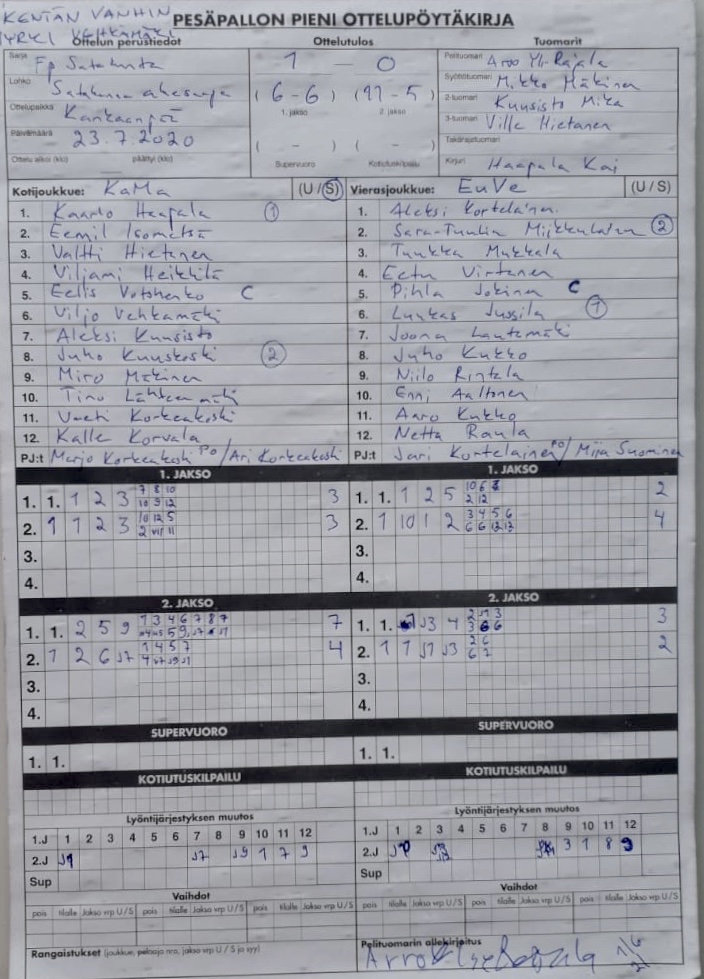 KENTÄN VANHIN
PESÄPALLON PIENI OTTELUPÖYTÄKIRJA
JYRKI VEHKAMÄKI
Ottelun perustiedot
Ottelutulos
Tuomarit
Sarja
Fp Satakunta
1 — 0
Pelituomari Arvo Yli-Rajala
Lohko
(6-6) (11-5)
Syöttötuomari Mikko Mäkinen
Ottelupaikka Kankaanpää
1. jakso 2. jakso
2-tuomari Kuusisto Mika
Päivämäärä 23.7.2020
3-tuomari Ville Hietanen
( - ) ( - )
Takarajatuomari
Ottelu alkoi (klo) päättyi (klo)
Supervuoro Kotiutuskilpailu
Kirjuri Haapala Kai
Kotijoukkue: KaMa (U / S)
1. Kaarlo Haapala 1
2. Eemil Isometsä
3. Valtti Hietanen
4. Viljami Heikkilä
5. Eelis Votshenko C
6. Viljo Vehkamäki
7. Aleksi Kuusisto
8. Juho Kuuskoski 2
9. Miro Mäkinen
10. Tino Lähteenmäki
11. Veeti Korkeakoski
12. Kalle Korvala
PJ:t Marjo Korkeakoski PO / Ari Korkeakoski
Vierasjoukkue: EuVe (U / S)
1. Aleksi Kortelainen
2. Sara-Tuulia Miikkulainen 2
3. Tuukka Mukkala
4. Eetu Virtanen
5. Pihla Jokinen C
6. Luukas Jussila 1
7. Joona Lautamäki
8. Juho Kukko
9. Niilo Rintala
10. Enni Aaltonen
11. Aaro Kukko
12. Netta Raula
PJ:t Jari Kortelainen PO / Mija Suominen
1. JAKSO
1. 1. 1 2 3 7 8 10 3
10 9 12
2. 1 1 2 3 10 12 5 3
3.
4.
1. JAKSO
1. 1. 1 2 5 2
2 12
2. 1 10 1 2 3 4 5 6 4
6 6 12 12
3.
4.
2. JAKSO
1. 1. 2 5 9 1 3 4 6 7 8 7 7
2. 1 2 6 J7 1 4 5 7 4
3.
4.
2. JAKSO
1. 1. J3 4 3
2. 1 1 J1 J3 2 6 2
6 7
3.
4.
SUPERVUORO
1. 1.
SUPERVUORO
1. 1.
KOTIUTUSKILPAILU
KOTIUTUSKILPAILU
Lyöntijärjestyksen muutos
1.J 1 2 3 4 5 6 7 8 9 10 11 12
2.J J1 J7 J9 1 7 9
Sup
Lyöntijärjestyksen muutos
1.J 1 2 3 4 5 6 7 8 9 10 11 12
2.J 3 1 8 9
Sup
Vaihdot
pois tilalle Jakso vrp U / S pois tilalle Jakso vrp U / S pois tilalle Jakso vrp U / S
Vaihdot
pois tilalle Jakso vrp U / S pois tilalle Jakso vrp U / S pois tilalle Jakso vrp U / S
Rangaistukset (joukkue, pelaaja nro, jakso vrp U / S ja syy)
Pelituomarin allekirjoitus